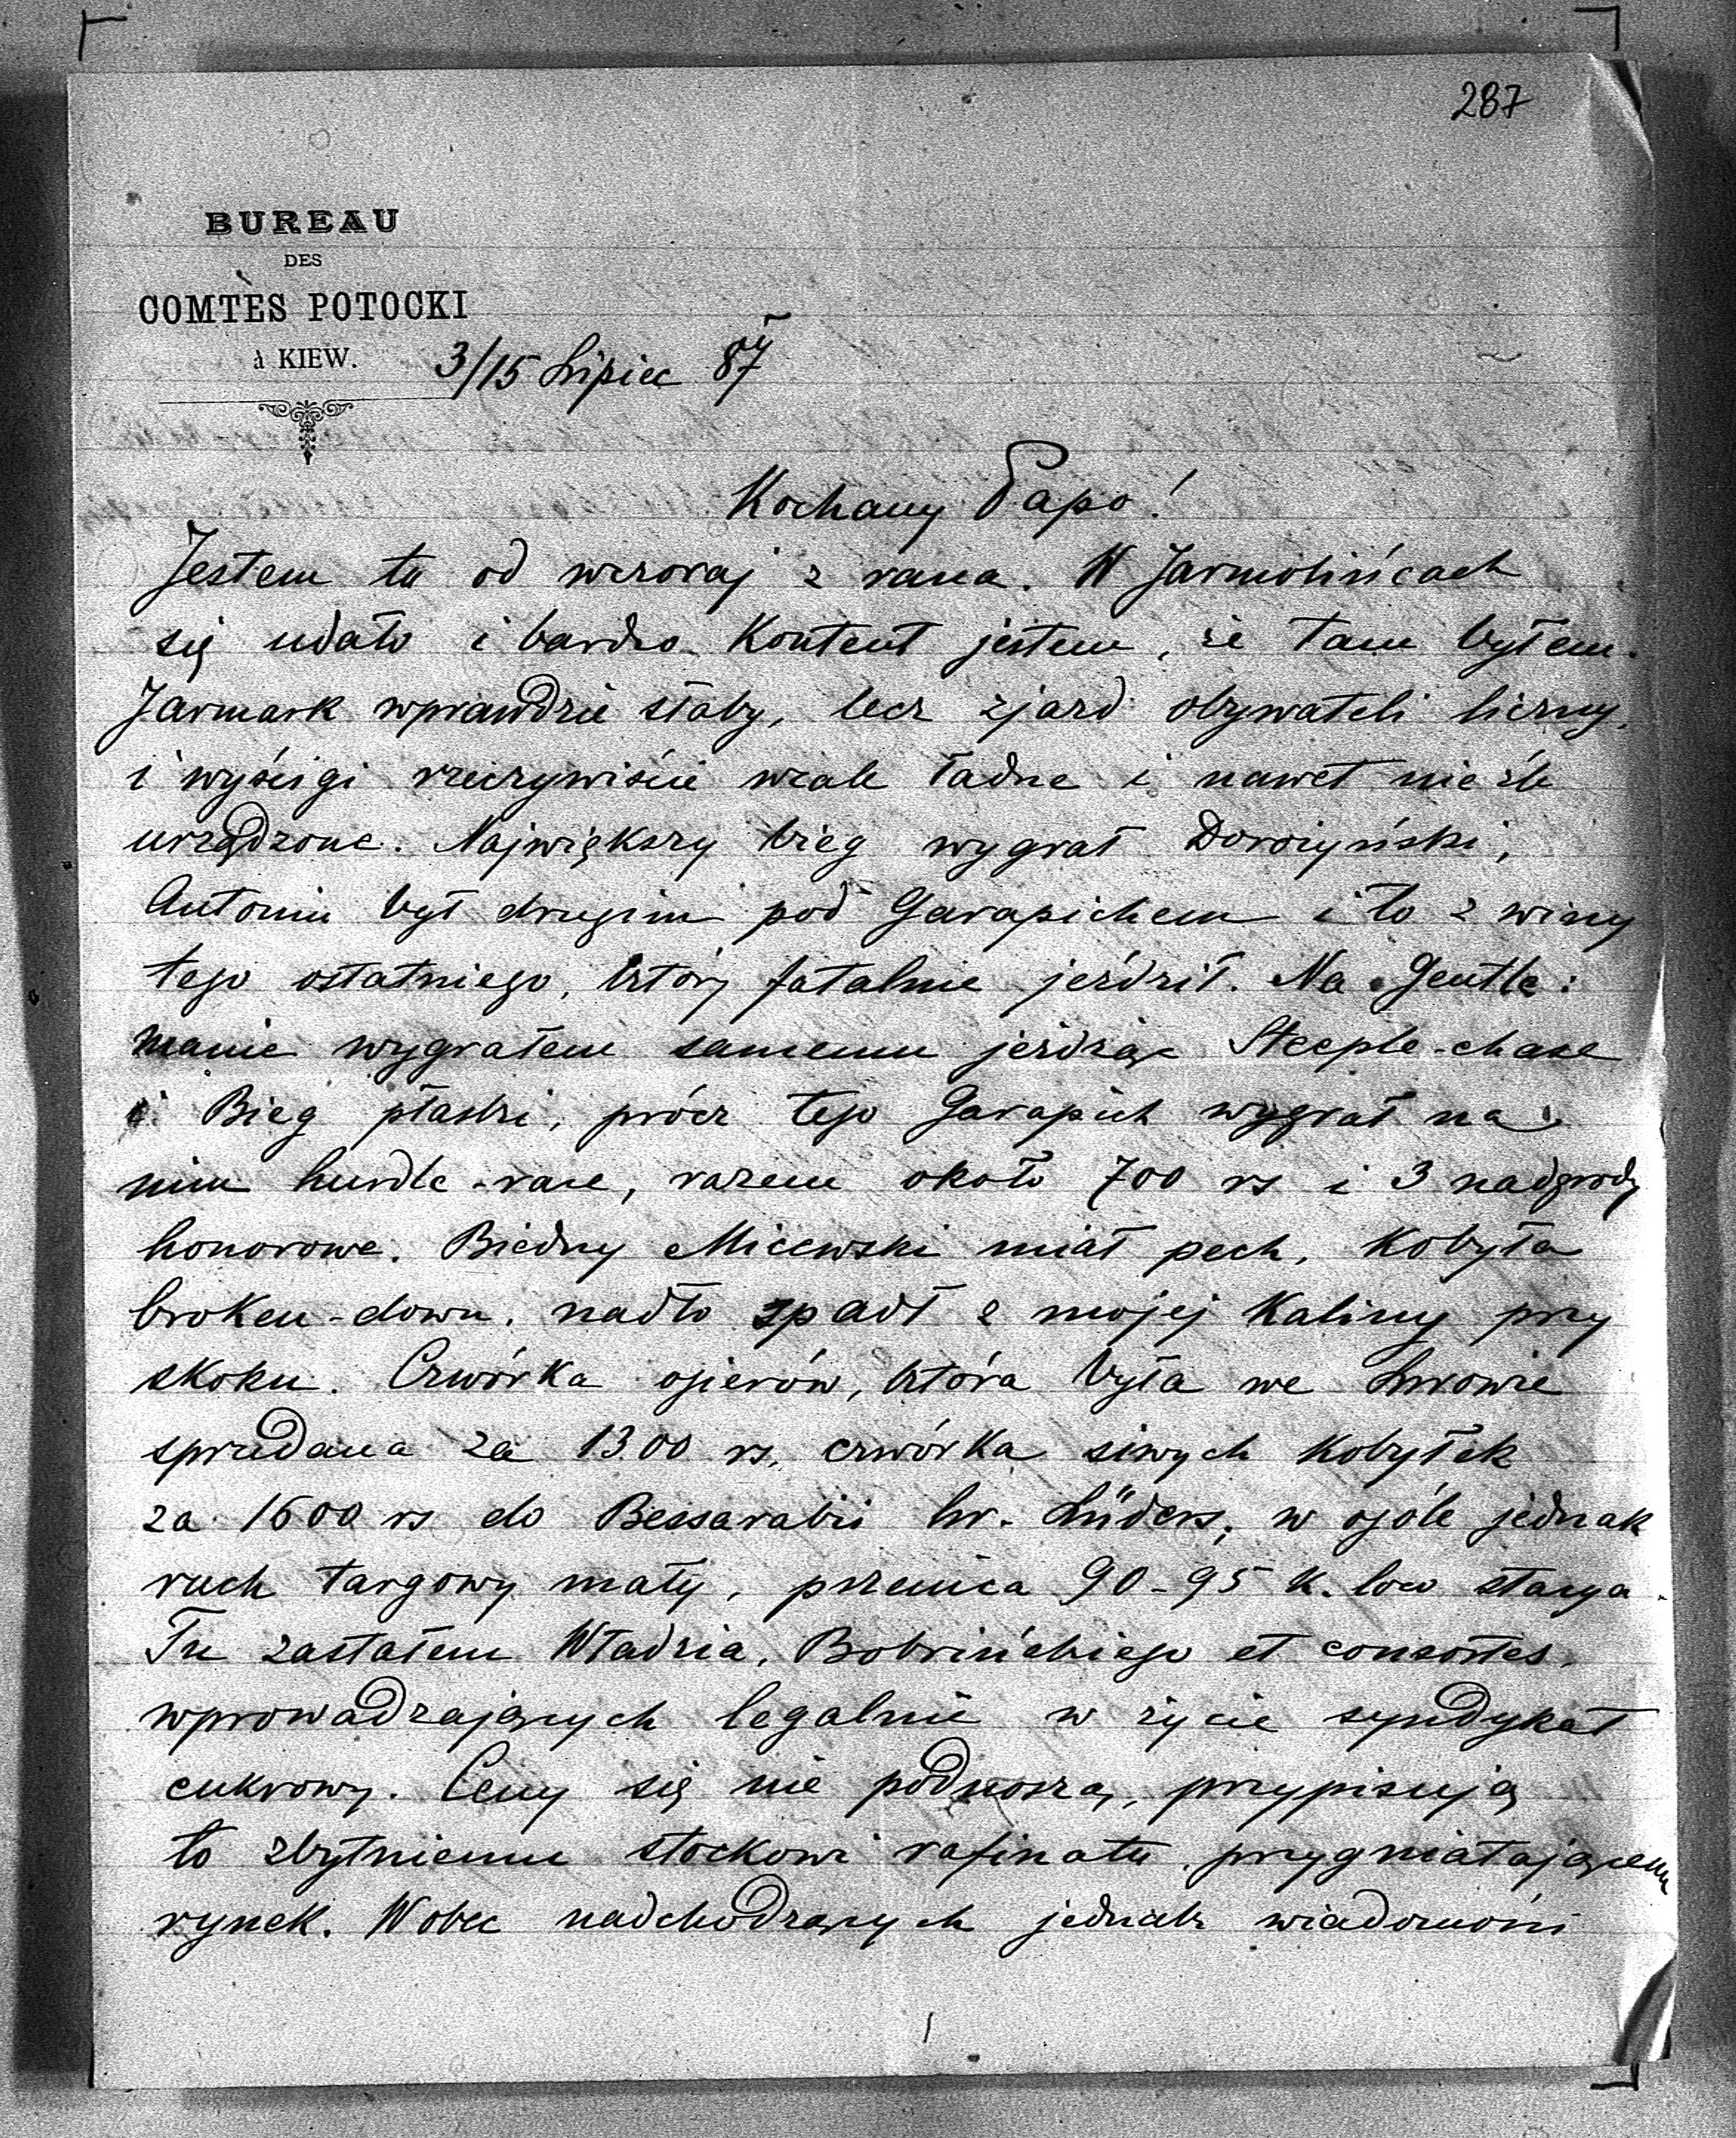 287
BUREAU
DES
COMTES POTOCKI
à KIEW.
3/15 Lipiec 87
Kochany Papo!
Jestem tu od wczoraj z rana. W Jarmolińcach
się udało i bardzo kontent jestem, że tam byłem.
Jarmark wprawdzie słaby, lecz zjazd obywateli liczny,
i wyścigi rzeczywiście wcale ładne i nawet nieźle
urządzone. Największy bieg wygrał Dorożyński,
Antonin był drugim pod Garapichem i to z winy
tego ostatniego, który fatalnie jeździł. Na Gentle:
manie wygrałem samemu jeżdżąc Steeple-chase
i Bieg płaski, prócz tego Garapich wygrał na
nim hurdle-race, razem około 700 rs i 3 nadgrody
honorowe. Biedny Micewski miał pech, Kobyła
broken-down, nadto spadł z mojej Kaliny przy
skoku. Czwórka ogierów, która była we Lwowie
sprzedana za 1300 rs, czwórka siwych Kobyłek
za 1600 rs do Bessarabii hr. Lüders, w ogóle jednak
ruch targowy mały, pszenica 90-95 k. loco stacya.
Tu zastałem Władzia, Bobrińskiego et consortes,
wprowadzających legalnie w życie syndykat
cukrowy. Ceny się nie podnoszą, przypisują
to zbytniemu stockowi rafinatu, przygniatającemu
rynek. Wobec nadchodzących jednak wiadomości
1